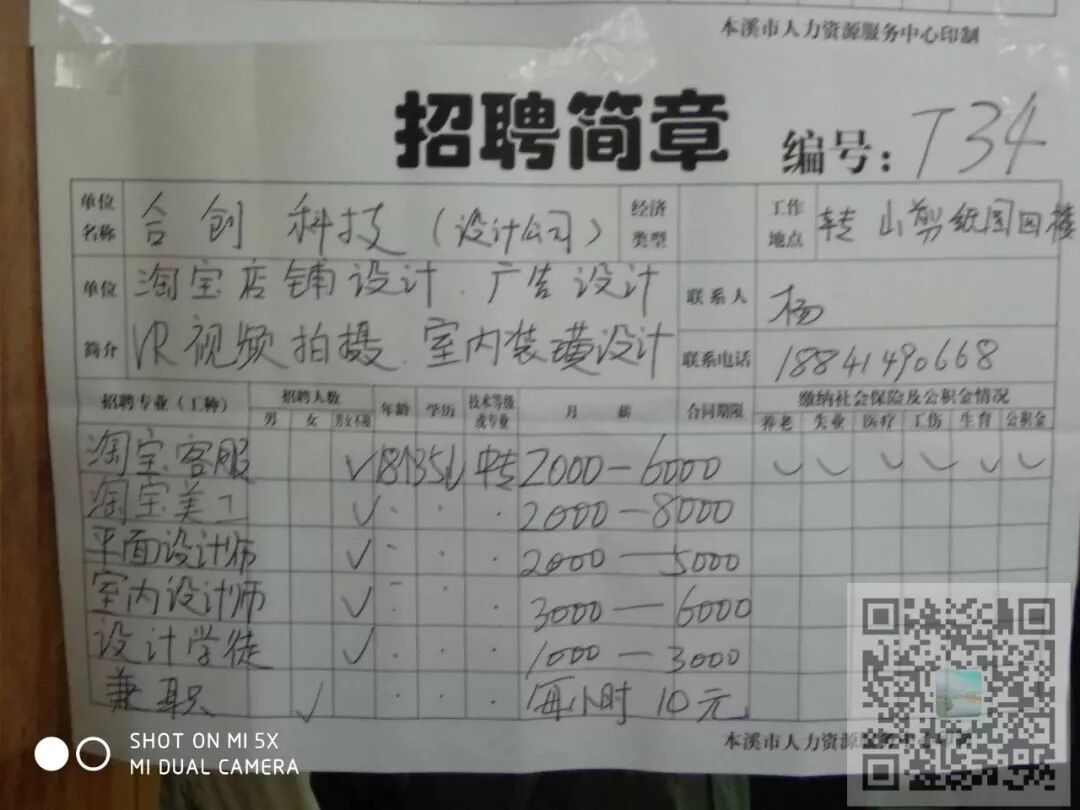 本溪市人力资源服务中心印制
招聘简章 编号：T34
单位名称 合创科技（设计公司） 经济类型 工作地点 转山剪纸园四楼
单位简介 淘宝店铺设计．广告设计 联系人 杨
VR视频拍摄．室内装璜设计 联系电话 18841490668
招聘专业（工种） 招聘人数 年龄 学历 技术等级或专业 月薪 合同期限 缴纳社会保险及公积金情况
男 女 男女不限 养老 失业 医疗 工伤 生育 公积金
淘宝客服 ✓ 中专 2000—6000 ✓ ✓ ✓ ✓ ✓ ✓
淘宝美工 ✓ 2000—8000
平面设计师 ✓ 2000—5000
室内设计师 ✓ 3000—6000
设计学徒 ✓ 1000—3000
兼职 ✓ 每小时10元
本溪市人力资源服务中心印制
SHOT ON MI 5X
MI DUAL CAMERA